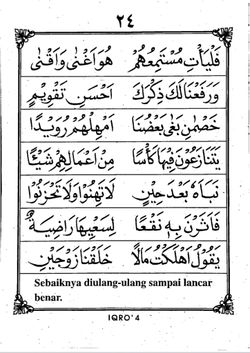 ٢٤
فَلْيَأْتِ مُسْتَمِعُهُمْ هُوَ اَغْنٰى وَاَقْنٰى
وَرَفَعْنَا لَكَ ذِكْرَكَ اَحْسَنِ تَقْوِيْمٍ
خَصْمٰنِ بَغٰى بَعْضُنَا اَمْهِلْهُمْ رُوَيْدًا
يَتَنَازَعُوْنَ فِيْهَا كَأْسًا مِنْ اَعْمَالِهِمْ شَيْئًا
نَبَاَهٗ بَعْدَ حِيْنٍ لَا تَهِنُوْا وَلَا تَحْزَنُوْا
فَاَثَرْنَ بِهٖ نَقْعًا لِسَعْيِهَا رَاضِيَةٌ
يَقُوْلُ اَهْلَكْتُ مَالًا خَلَقْنَا زَوْجَيْنِ
Sebaiknya diulang-ulang sampai lancar
benar.
IQRO' 4